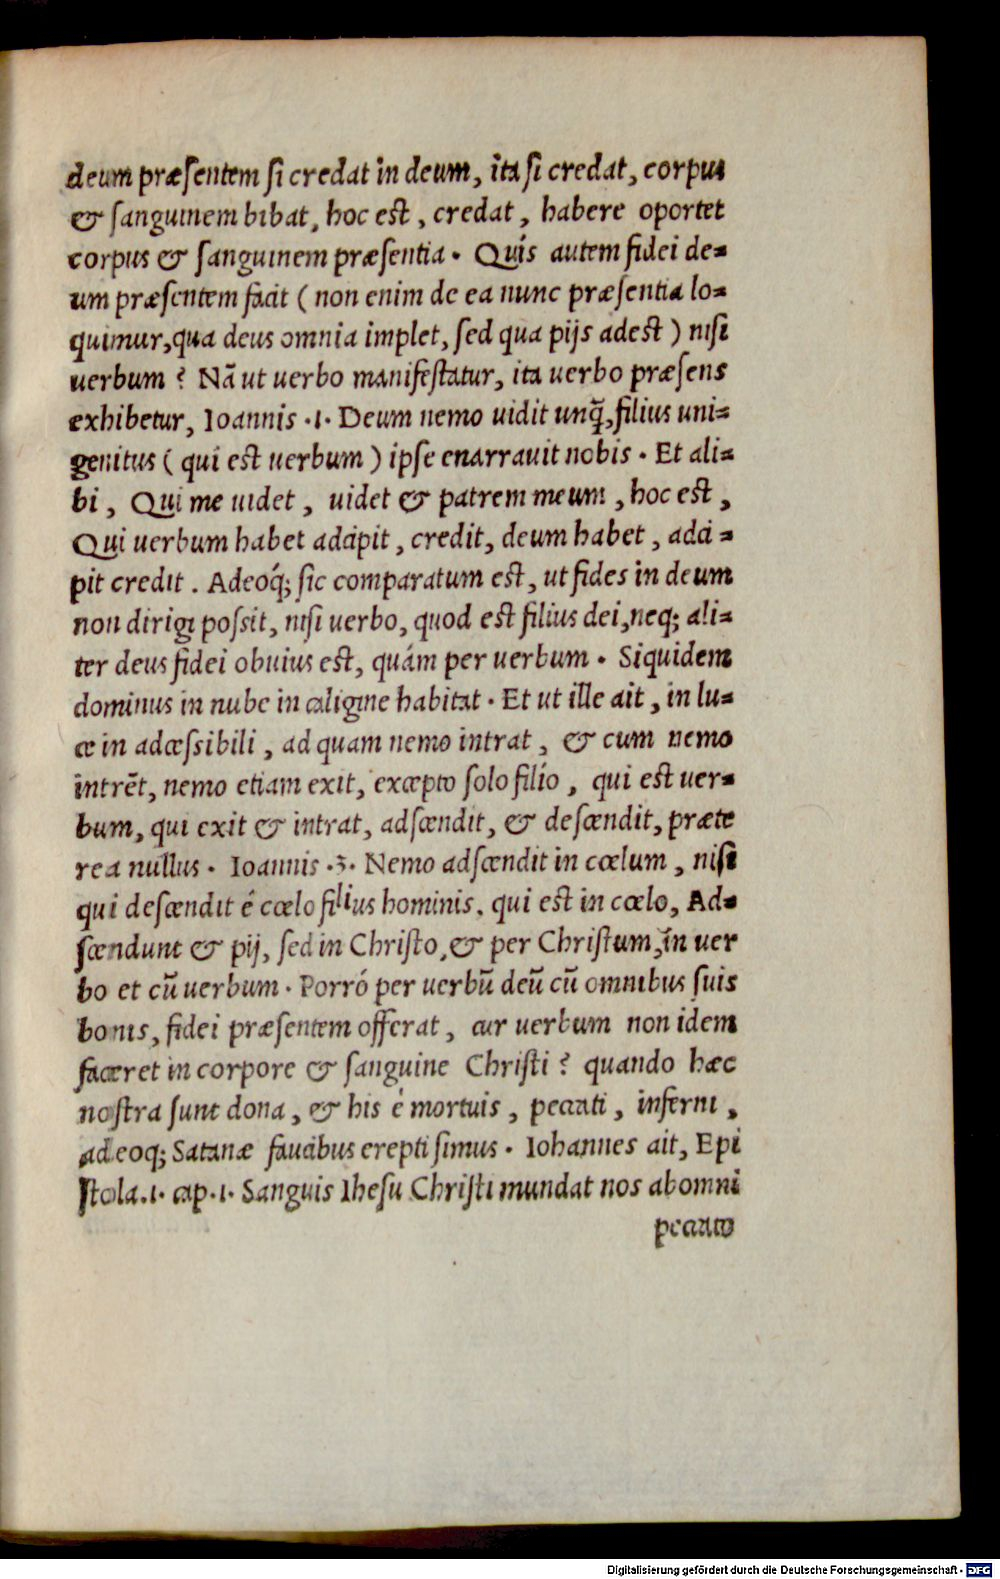 deum præſentem ſi credat in deum, ita ſi credat, corpus
& ſanguinem bibat, hoc eſt, credat, habere oportet
corpus & ſanguinem præſentia. Quis autem fidei de=
um præſentem facit (non enim de ea nunc præſentia lo=
quimur, qua deus omnia implet, ſed qua pijs adest) niſi
uerbum? Nã ut uerbo manifeſtatur, ita uerbo præſens
exhibetur, Ioannis .1. Deum nemo uidit unq̃, filius uni=
genitus (qui est uerbum) ipſe enarrauit nobis. Et ali=
bi, Qui me uidet, uidet & patrem meum, hoc eſt,
Qui uerbum habet accipit, credit, deum habet, acci=
pit credit. Adeoq́; ſic comparatum eſt, ut fides in deum
non dirigi poſsit, niſi uerbo, quod eſt filius dei, neq; ali=
ter deus fidei obuius eſt, quám per uerbum. Siquidem
dominus in nube in caligine habitat. Et ut ille ait, in lu=
ce in accessibili, ad quam nemo intrat, & cum nemo
intrẽt, nemo etiam exit, excepto ſolo filio, qui est uer=
bum, qui exit & intrat, adſcendit, & deſcendit, præte
rea nullus. Ioannis .3. Nemo adſcendit in cœlum, niſi
qui deſcendit é cœlo filius hominis, qui est in cœlo, Ad=
ſcendunt & pij, ſed in Chriſto, & per Chriſtum, in uer
bo et cũ uerbum. Porró per uerbũ deũ cũ omnibus ſuis
bonis, fidei præſentem offerat, cur uerbum non idem
faceret in corpore & ſanguine Chriſti? quando hæc
noſtra ſunt dona, & his é mortuis, peccati, inferni,
adeoq; Satanæ faucibus erepti ſimus. Iohannes ait, Epi
ſtola .1. cap. 1. Sanguis Iheſu Chriſti mundat nos ab omni
peccato
Digitalisierung gefördert durch die Deutsche Forschungsgemeinschaft - DFG